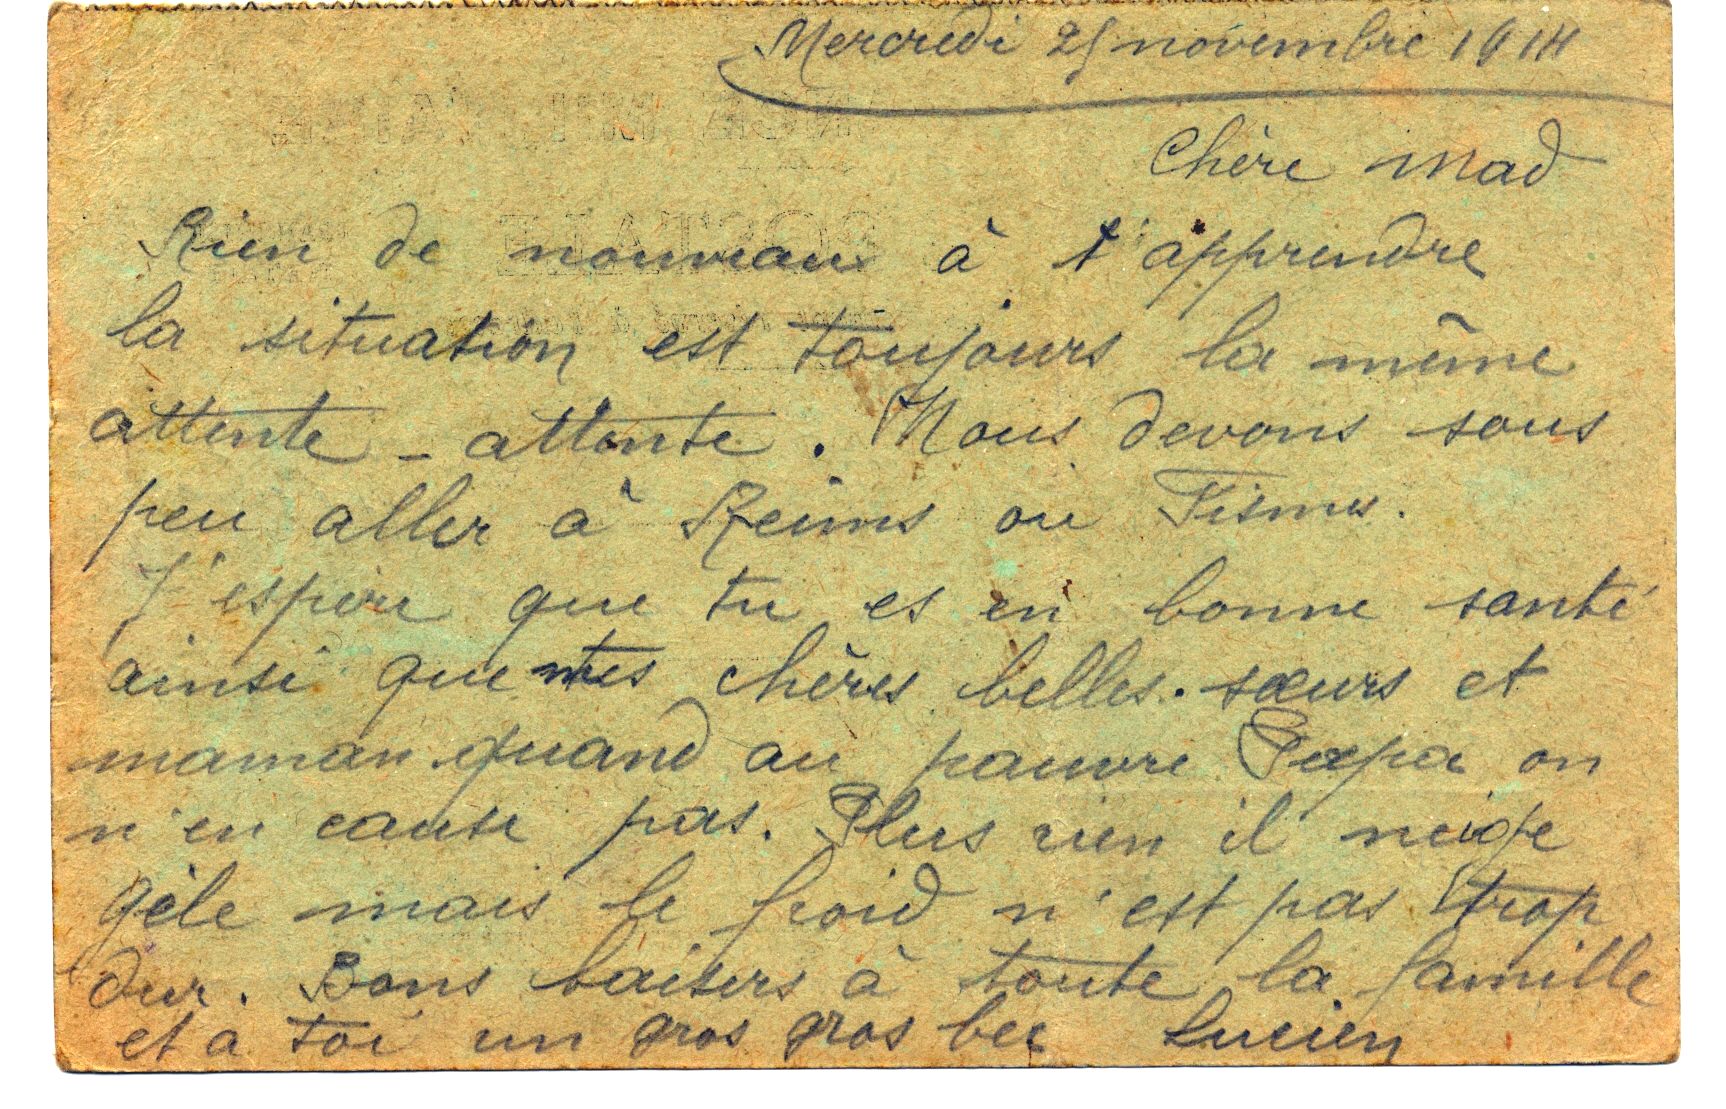 Mercredi 25 novembre 1914
Chère Mad
Rien de nouveau à t'apprendre
la situation est toujours la même
attente - attente. Nous devons sous
peu aller à Reims ou Fismes.
J'espère que tu es en bonne santé
ainsi que mes chères belles-sœurs et
maman quand au pauvre Papa on
n'en cause pas. Plus rien il neige
gèle mais le froid n'est pas trop
dur. Bons baisers à toute la famille
et a toi un gros gros bec Lucien